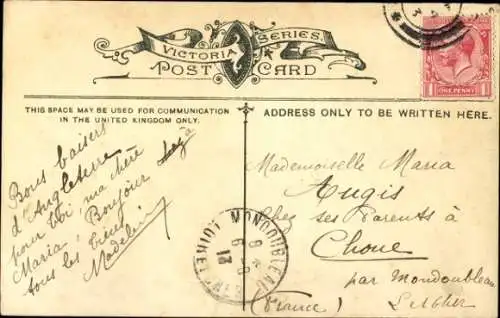 VICTORIA SERIES
POST CARD
THIS SPACE MAY BE USED FOR COMMUNICATION
IN THE UNITED KINGDOM ONLY.
ADDRESS ONLY TO BE WRITTEN HERE.
Bons baisers
d'Angleterre
pour toi, ma chère
Maria. Bonjour
à tous les
Madeleine
Mademoiselle Maria
Augis
Chez ses Parents à
Choue
par Mondoubleau
(France) L et Cher
MONDOUBLEAU
LOIR ET CHER
8 - 6
21
ONE PENNY